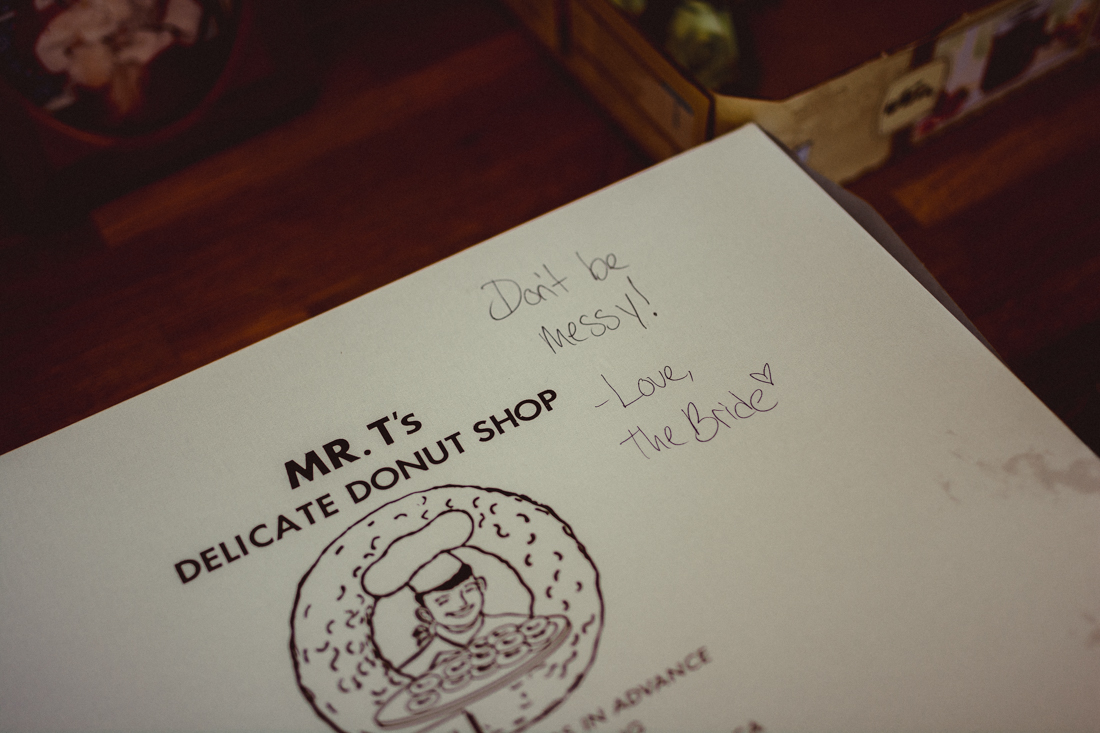 Don't be
messy!
-Love,
the Bride
MR. T's
DELICATE DONUT SHOP
IN ADVANCE